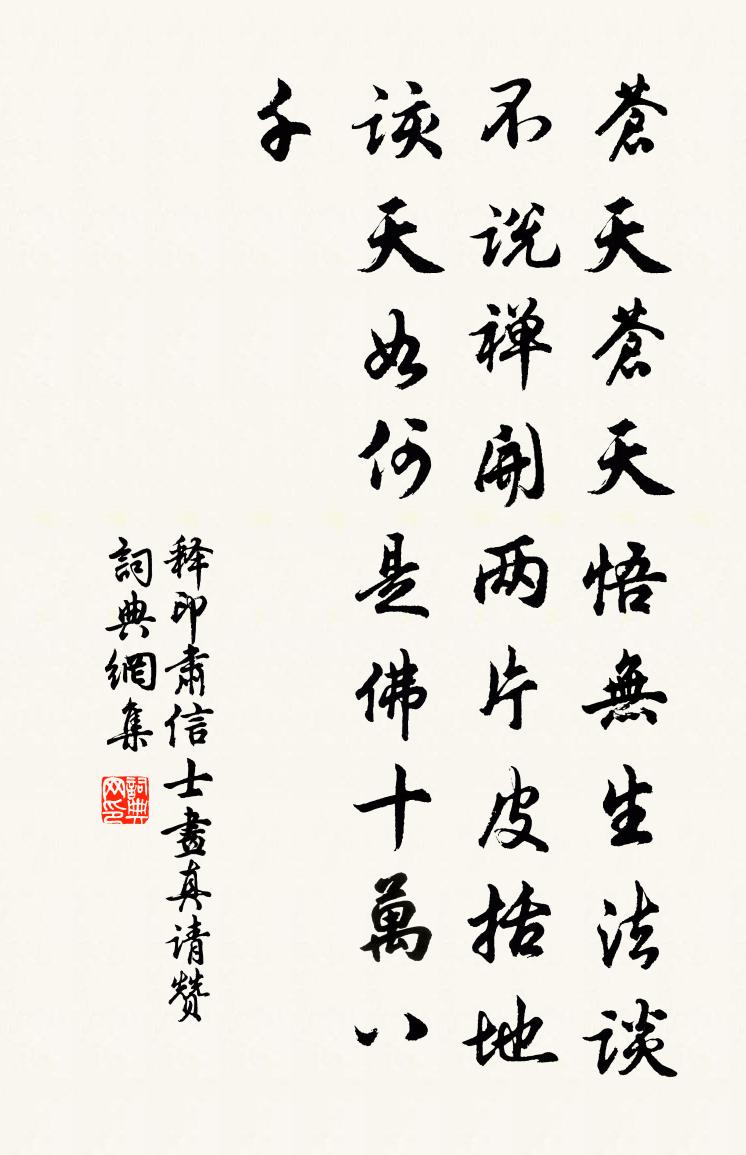 蒼天蒼天悟無生法談
不说禅開两片皮括地
該天如何是佛十萬八
千
释印肅信士畫真请赞
詞典網集
詞典網印